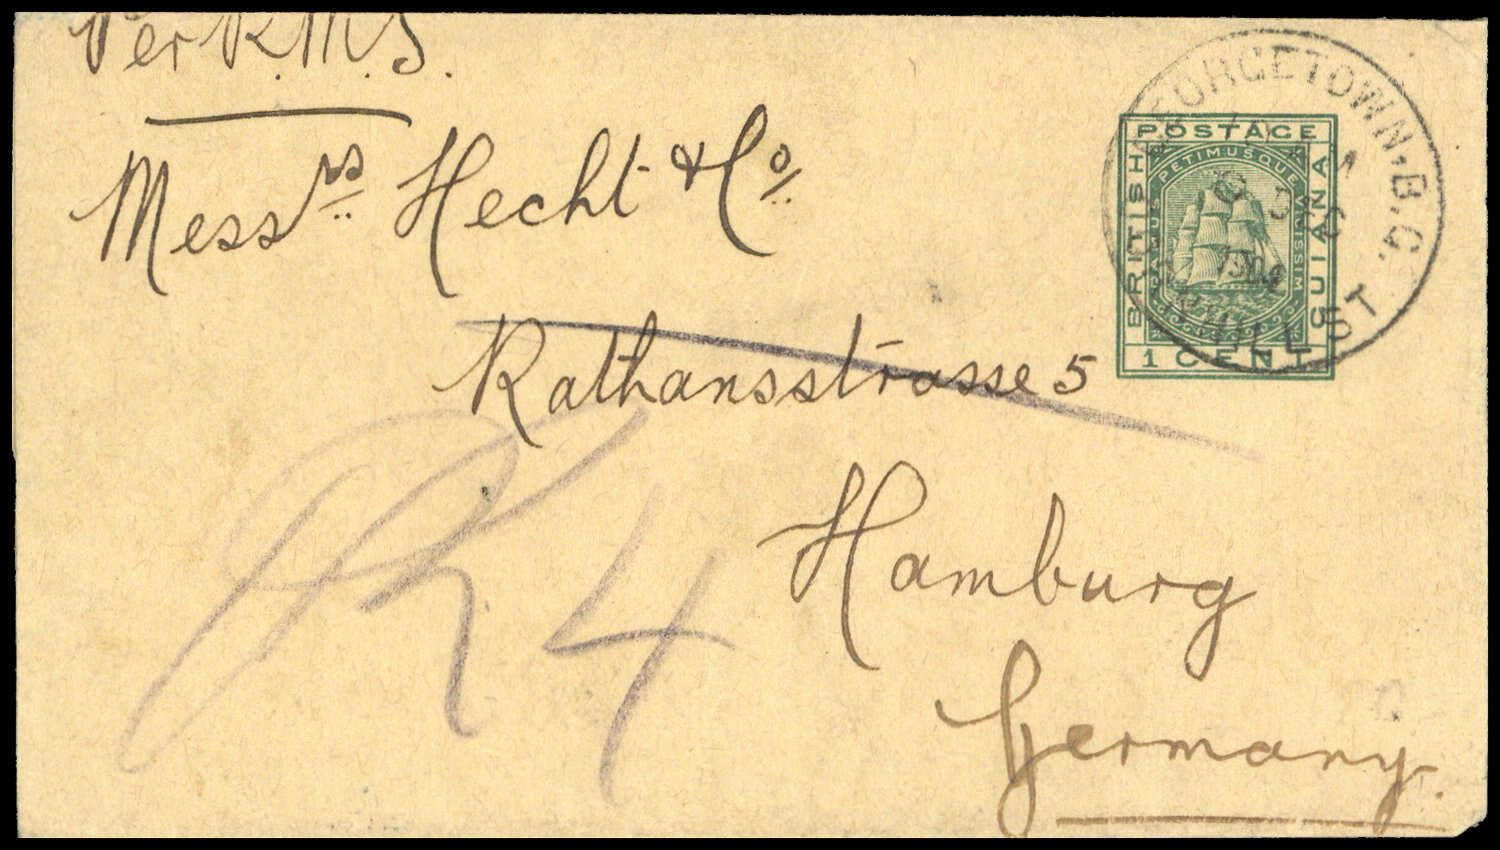 Per R.M.S.
Messrs Hecht & Co/
Rathansstrasse 5
Hamburg
Germany.
R 4
POSTAGE
BRITISH
GUIANA
1 CENT
PETIMUSQUE
VICISSIM
GEORGETOWN. B.G.
DE
ST